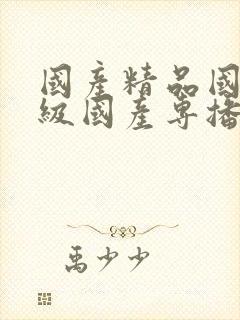 國產精品國
級國產專播
禹少少